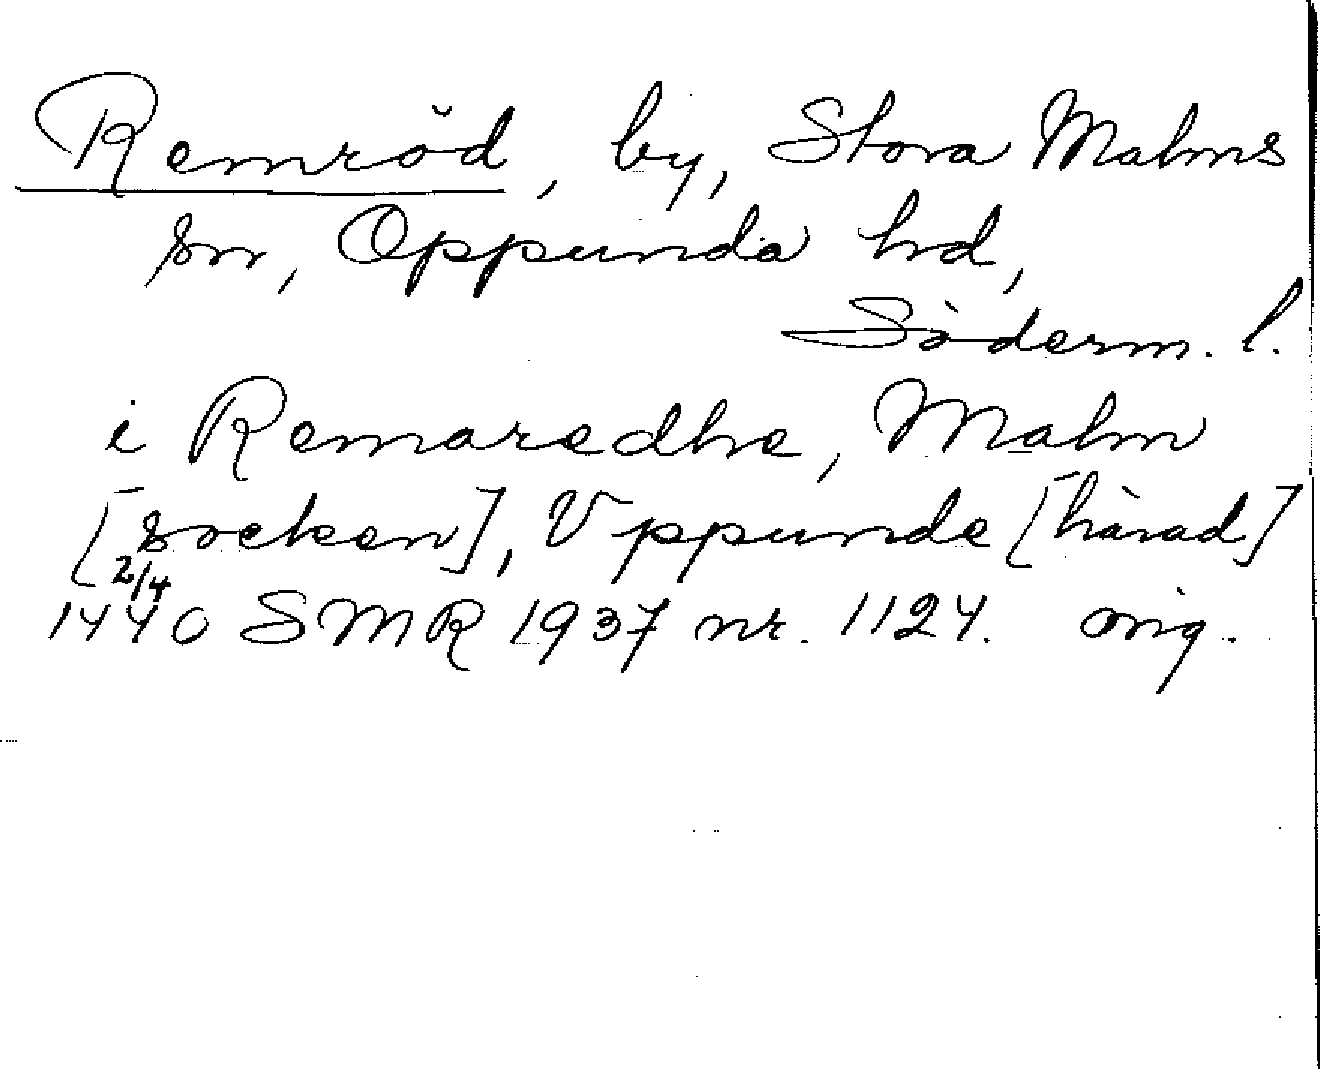 Remröd, by, Stora Malms
sn, Oppunda hd,
Söderm. l.
i Remaredhe, Malm
[socken], Vppunde [härad]
2/4
1440 SMR 1937 nr. 1124. orig.